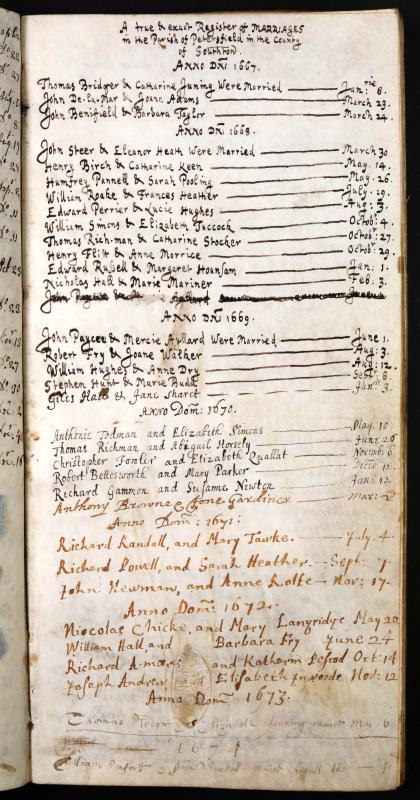 A true & exact Register of MARRIAGES
in the Parish of Petersfield in the County
of Southton.
ANNO DNI 1667.
Thomas Bridger & Catharine Juning Were Married Jan: 8.
John De-la-Mar & Joane Adams March 23.
John Benifield & Barbara Taylor March 24.
ANNO DNI 1668.
John Steer & Eleanor Heath Were Married March 30
Henry Birch & Catharine Keen May. 14.
Humfrey Pannell & Sarah Poolme May. 26.
William Roake & Frances Heather July. 19.
Edward Perrier & Lucie Hughes Aug: 3.
William Simons & Elizabeth Tuccock Octob: 4.
Thomas Rich-man & Catharine Stocher Octob: 27.
Henry Flitt & Anne Morrice Octob: 29.
Edward Russell & Margaret Hounsam Jan: 1.
Nicholas Hall & Marie Mariner Feb: 3.
John
ANNO DNI 1669.
John Paycee & Mercie Ayllard Were Married June 1.
Robert Fry & Joane Walker Aug: 3.
William Hughes & Anne Dry Aug: 12.
Stephen Hunt & Marie Budd Sept: 6.
Giles Hall & Jane Sharet 3.
ANNO Dom: 1670.
Anthonie Todman and Elizabeth Simons May. 10
Thomas Richman and Abigail Horsely June 26
Christopher Fowler and Elizabeth Quallat Novemb: 6
Robert Bettesworth and Mary Parker Decem. 12.
Richard Gammon and Susanne Newton Jan: 12
Anthony Browne & Jone Gardiner Mar: 2
Anno Dom: 1671:
Richard Randall, and Mary Tawke. July. 4.
Richard Powell, and Sarah Heather. Sept: 7.
John Newman, and Anne Rolfe Nov: 17.
Anno Dom: 1672.
Niocolas Chicke, and Mary Langridge May 20
William Hall, and Barbara Fry June 24
Richard and Katharin Oct: 14
Joseph Andrew Elisabeth Nov: 12
Anno Dom 1673.
Thomas May 6
1674
William August